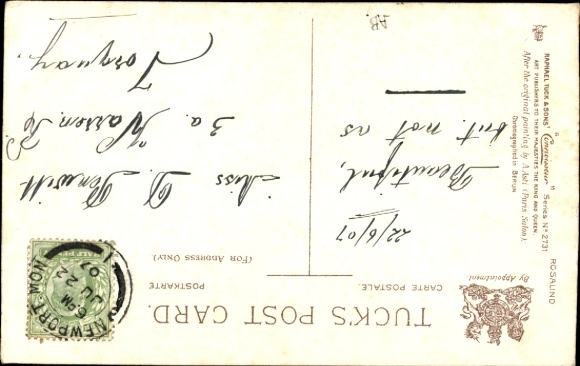 TUCK'S POST CARD.
CARTE POSTALE.
POSTKARTE
(FOR ADDRESS ONLY)
By Appointment
ROSALIND
RAPHAEL TUCK & SONS' "Connoisseur" Series Nº 2731
ART PUBLISHERS TO THEIR MAJESTIES THE KING AND QUEEN.
After the original painting by A. Asti (Paris Salon).
Chromographed in BERLIN
22/6/07
Beautiful,
but not as
AB.
Miss D.
3 a. Warren Rd
Torquay.
NEWPORT MON
JU 22
07